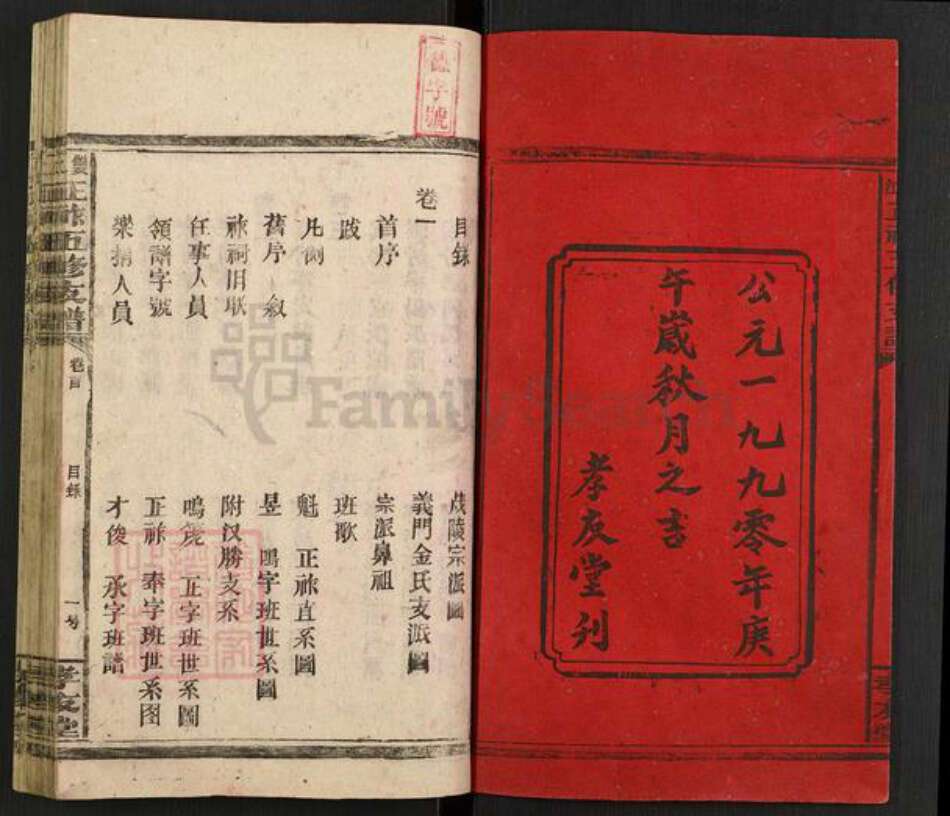 公元一九九零年庚
午嵗秋月之吉
孝友堂刋
字號
目錄
卷一
首序
跋
凡例
舊序 敘
祢祠旧联
任事人員
領譜字號
樂捐人員
宗派圖
義門金氏支派圖
宗派鼻祖
班歌
魁 正祢直系圖
昱 鳴字班世系圖
附汉勝支系
鳴 正字班世系圖
正祢 奉字班世系图
才俊 承字班譜
正祢五修支譜
卷首
目錄
一号
孝友堂
FamilySearch